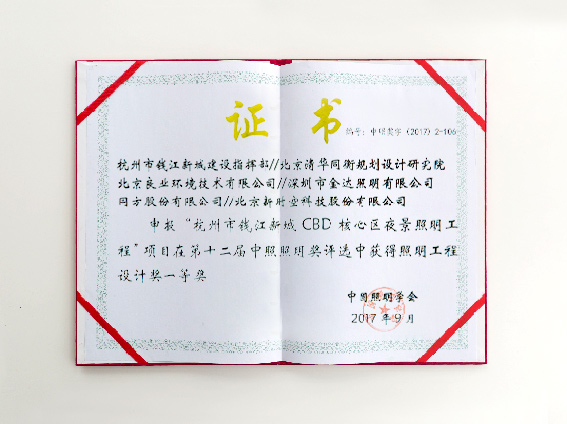 证 书
编号：中照奖字（2017）2-106
杭州市钱江新城建设指挥部//北京清华同衡规划设计研究院
北京良业环境技术有限公司//深圳市金达照明有限公司
同方股份有限公司//北京新时空科技股份有限公司
申报“杭州市钱江新城CBD核心区夜景照明工
程”项目在第十二届中照照明奖评选中获得照明工程
设计奖一等奖
中国照明学会
2017年9月